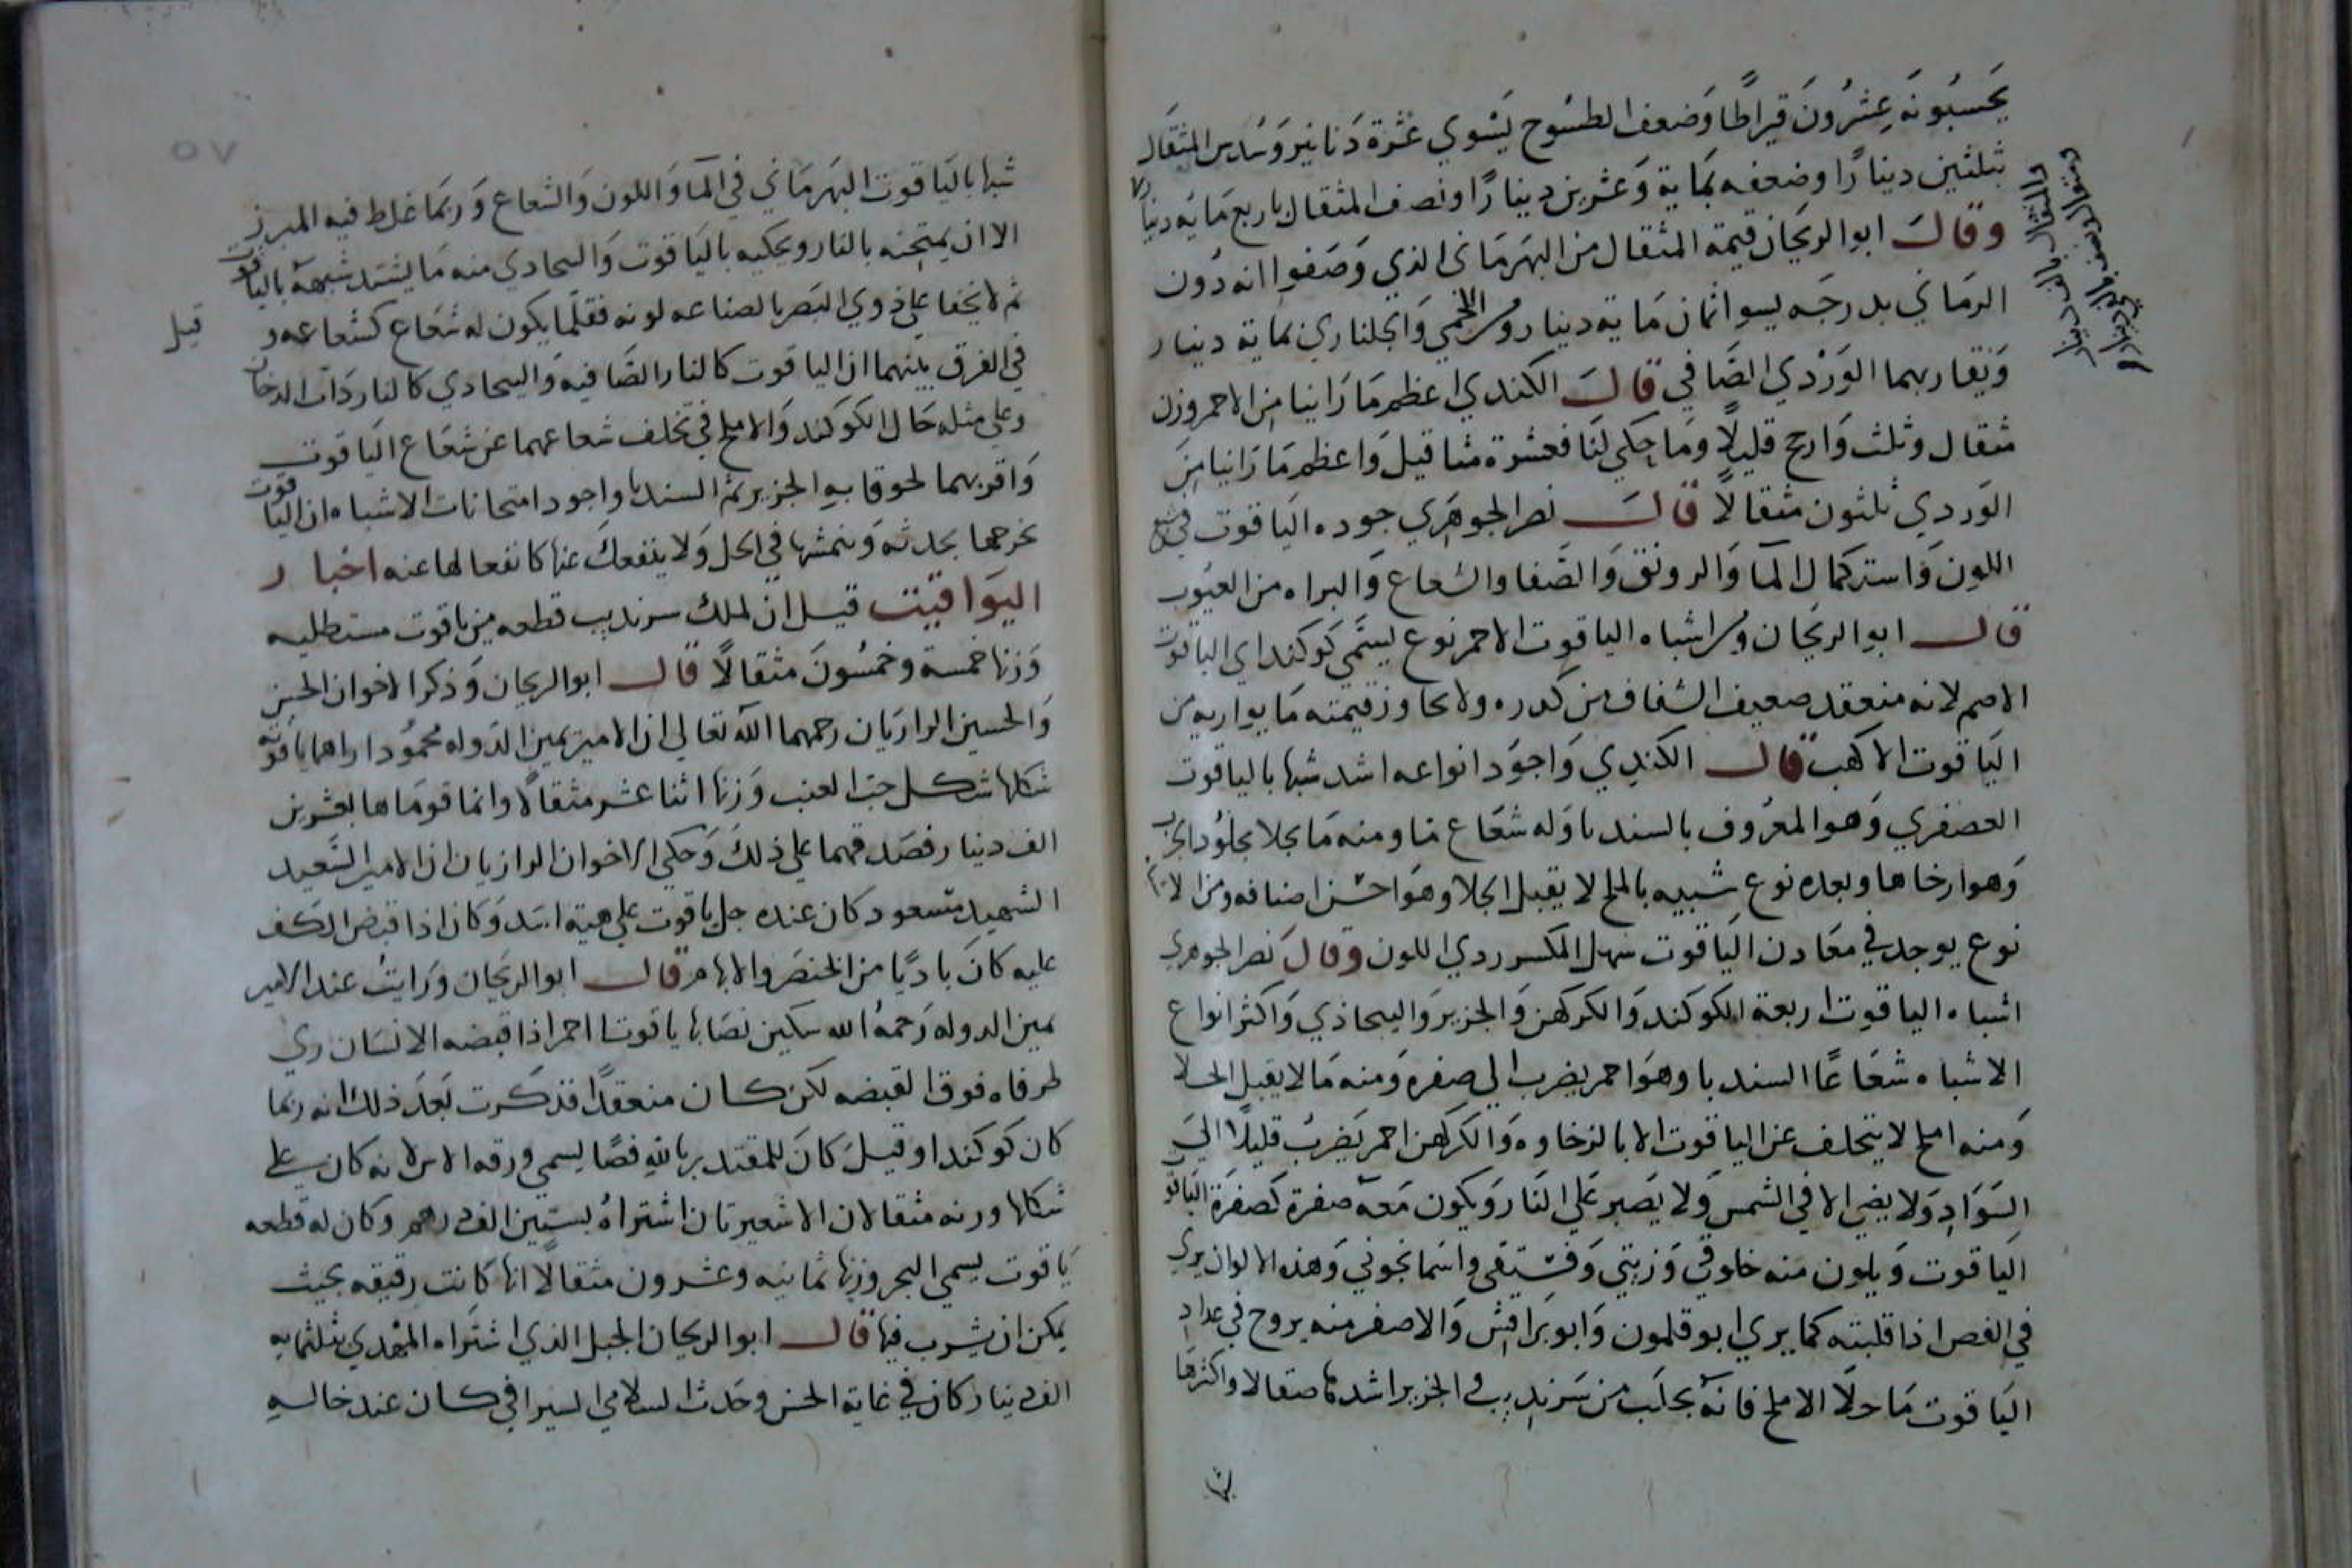 يحسبونه عشرون قيراطا وضعف الطسوج يسوي عشرة دنانير وسدس المثقال
بثلثين دينارًا وضعفه بماية وعشرين دينارًا ونصف المثقال باربع مايه دينار
والمثقال بالف دينار
وقال ابو الريحان قيمة المثقال من البهرماني الذي وصفوا انه دون
الرماني بدرجه يسوا ثمان ماية دينار ومن اللخمي والجلناري بماية دينار
ويقاربهما الوردي الصافي قال الكندي اعظم ما راينا من الاحمر وزن
مثقال وثلث وارجح قليلًا وما حكي لنا فعشرة مثاقيل واعظم ما راينا من
الوردي ثلثون مثقالًا قال نصر الجوهري جوده الياقوت في شبع
اللون واستكمال المآ والرونق والصفا والشعاع والبراه من العيوب
قال ابو الريحان ومن اشباه الياقوت الاحمر نوع يسمي كوكند اي الياقوت
الاصم لانه منعقد ضعيف الشفاف من كدره ولا يجاوز قيمته ما يوازيه من
الياقوت الاكهب قال الكندي واجود انواعه اشد شبها بالياقوت
العصفري وهو المعروف بالسنديا وله شعاع ما ومنه ما يجلا بجلود الجزب
وهو ارخاها وبعده نوع شبيه بالملح لا يقبل الجلا وهو احسن اصنافه ومن
نوع يوجد في معادن الياقوت سهل المكسر ردي اللون وقال نصر الجوهري
اشباه الياقوت اربعة الكوكند والكركهن والجزبز والبيجاذي واكثر انواع
الاشباه شعاعًا السنديا وهو احمر يضرب الي صفره ومنه ما لا يقبل الجلا
ومنه املح لا يتخلف عن الياقوت الا بالرخاوه والكركهن احمر يضرب قليلًا الي
السواد ولا يضي الا في الشمس ولا يصبر علي النار ويكون معه صفرة كصفرة الياقو
الياقوت ويلون منه خلوقي وزيتي وفستقي واسمانجوني وهذه الالوان يري
في الفص اذا قلبته كما يري ابو قلمون وابو براقش والاصفر منه يروج في عداد
الياقوت ما خلا الاملح فانه يجلب من سرنديب والجزبز اشدها صقالا واكثرها
شبها بالياقوت البهرماني في المآ واللون والشعاع وربما غلط فيه المبرز
الا ان يمتحنه بالنار ويحكيه بالياقوت والبيجادي منه ما يشتد شبهه بالياقوت
ثم لا يخفا علي ذوي البصر بالصناعه لونه فقلما يكون له شعاع كشعاعه و
قيل
في الفرق بينهما ان الياقوت كالنار الصافيه والبيجادي كالنار ذات الدخان
وعلي مثله حال الكوكند والاملح في تخلف شعاعهما عن شعاع الياقوت
واقربهما لحوقا به الجزبز ثم السنديا واجود امتحانات الاشباه ان الياقوت
يخرجها بحدته ويخمشها في الحل ولا ينفعل عنها كانفعالها عنه اخبار
اليواقيت قيل ان لملك سرنديب قطعه من ياقوت مستطليه
وزنها خمسة وخمسون مثقالًا قال ابو الريحان وذكر الاخوان الحسن
والحسين الرازيان رحمهما الله تعالي ان الامير يمين الدوله محمود اراهما ياقوته
شكلها شكل حب العنب وزنها اثنا عشر مثقالًا وانما قوماها بعشرين
الف دينار فصدقهما علي ذلك وحكي الاخوان الرازيان ان الامير السعيد
الشهيد مسعود كان عنده جبل ياقوت علي هية اسد وكان اذا قبض الكف
عليه كان باديًا من الخنصر والابهام قال ابو الريحان ورايت عند الامير
يمين الدوله رحمه الله سكين نصابها ياقوتا احمر اذا قبضه الانسان ري
طرفاه فوق القبضه لكن كان منعقدًا فذكرت بعد ذلك انه ربما
كان كوكندا وقيل كان للمقتدر بالله فصًا يسمي ورقه الاس لانه كان علي
شكلها وزنه مثقالان الا شعيرتان اشتراه بستين الف درهم وكان له قطعه
ياقوت يسمي البحر وزنها ثمانيه وعشرون مثقالًا انها كانت رقيقه بحيث
يمكن ان يشرب فيها قال ابو الريحان الجبل الذي اشتراه المهدي بثلثمايه
الف دينار كان في غاية الحسن وحدث السلامي السيرافي كان عند خاله